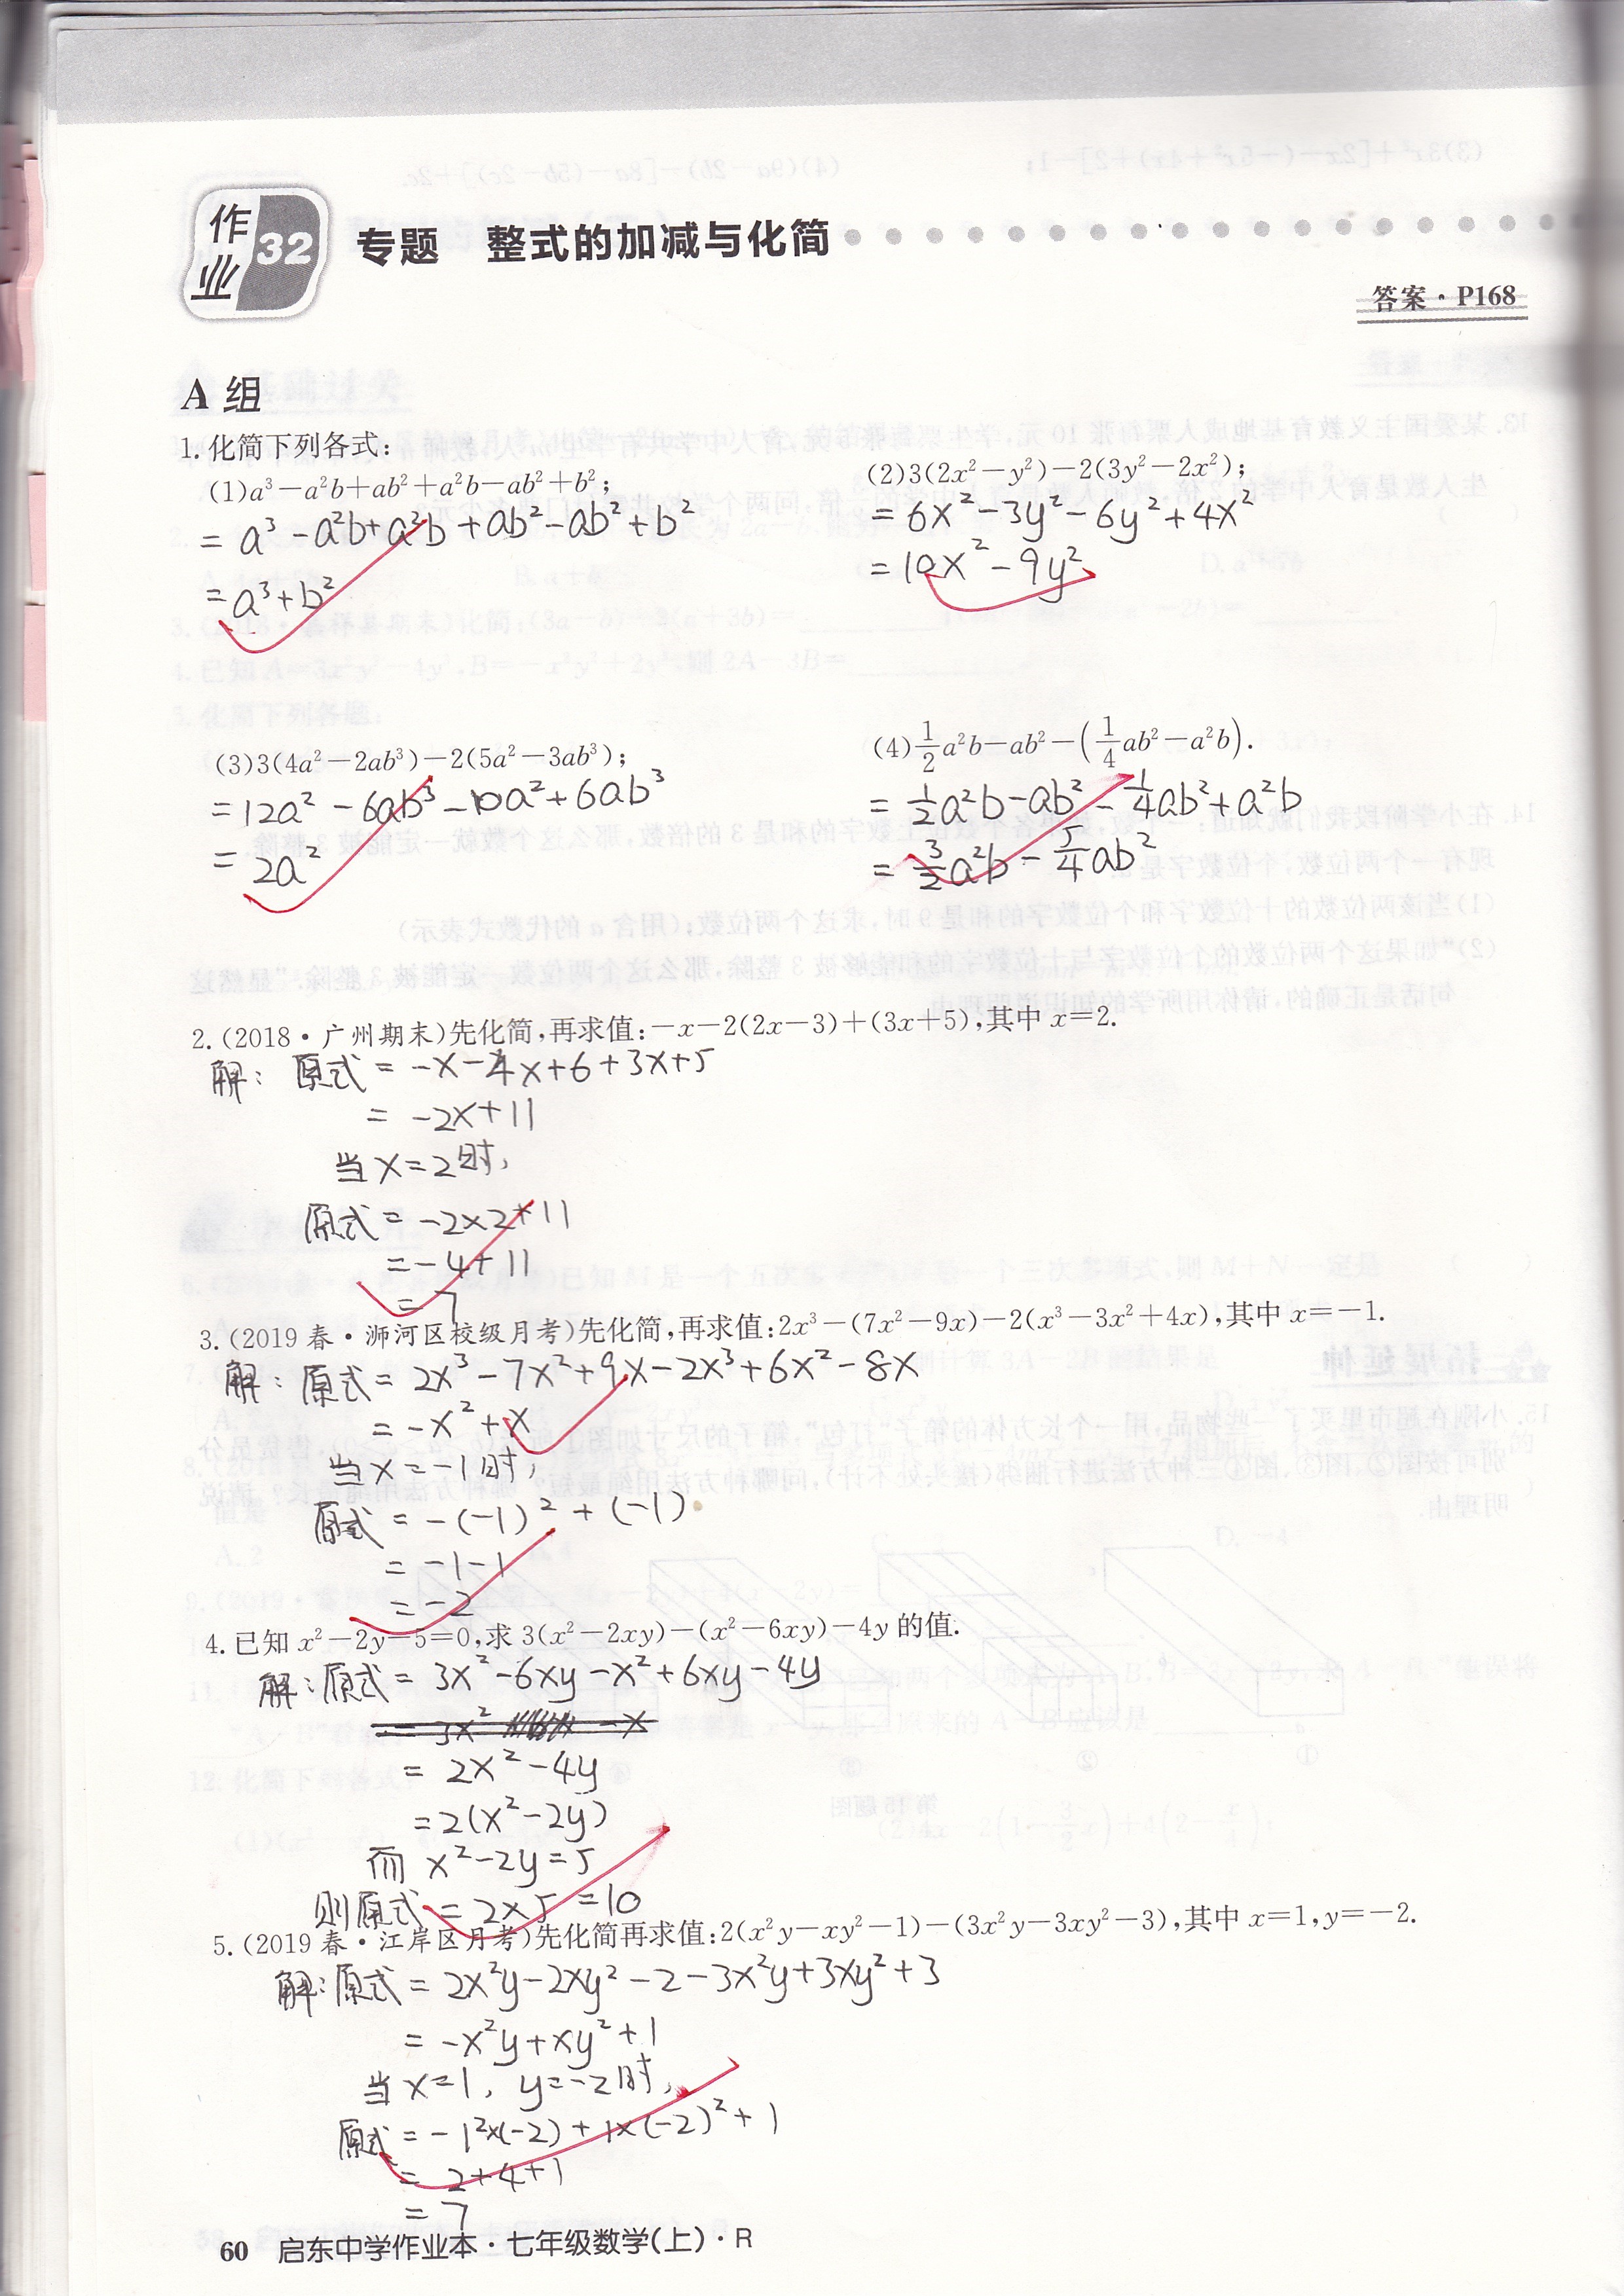 作业 32 专题 整式的加减与化简
答案·P168
A 组
1. 化简下列各式:
(1)a³-a²b+ab²+a²b-ab²+b²;
= a³-a²b+a²b+ab²-ab²+b²
= a³+b²
(2)3(2x²-y²)-2(3y²-2x²);
= 6x²-3y²-6y²+4x²
= 10x²-9y²
(3)3(4a²-2ab³)-2(5a²-3ab³);
= 12a²-6ab³-10a²+6ab³
= 2a²
(4)1/2a²b-ab²-(1/4ab²-a²b).
= 1/2a²b-ab²-1/4ab²+a²b
= 3/2a²b-5/4ab²
2. (2018·广州期末)先化简,再求值:-x-2(2x-3)+(3x+5),其中 x=2.
解: 原式 = -x-4x+6+3x+5
= -2x+11
当x=2时,
原式 = -2×2+11
= -4+11
= 7
3. (2019 春·浉河区校级月考)先化简,再求值:2x³-(7x²-9x)-2(x³-3x²+4x),其中 x=-1.
解: 原式 = 2x³-7x²+9x-2x³+6x²-8x
= -x²+x
当x=-1时,
原式 = -(-1)²+(-1)
= -1-1
= -2
4. 已知 x²-2y-5=0,求 3(x²-2xy)-(x²-6xy)-4y 的值.
解:原式 = 3x²-6xy-x²+6xy-4y
= 2x²-4y
=2(x²-2y)
而 x²-2y=5
则原式 = 2×5 =10
5. (2019 春·江岸区月考)先化简再求值:2(x²y-xy²-1)-(3x²y-3xy²-3),其中 x=1,y=-2.
解:原式 = 2x²y-2xy²-2-3x²y+3xy²+3
= -x²y+xy²+1
当x=1, y=-2时,
原式 = -1²×(-2)+1×(-2)²+1
= 2+4+1
= 7
60 启东中学作业本·七年级数学(上)·R